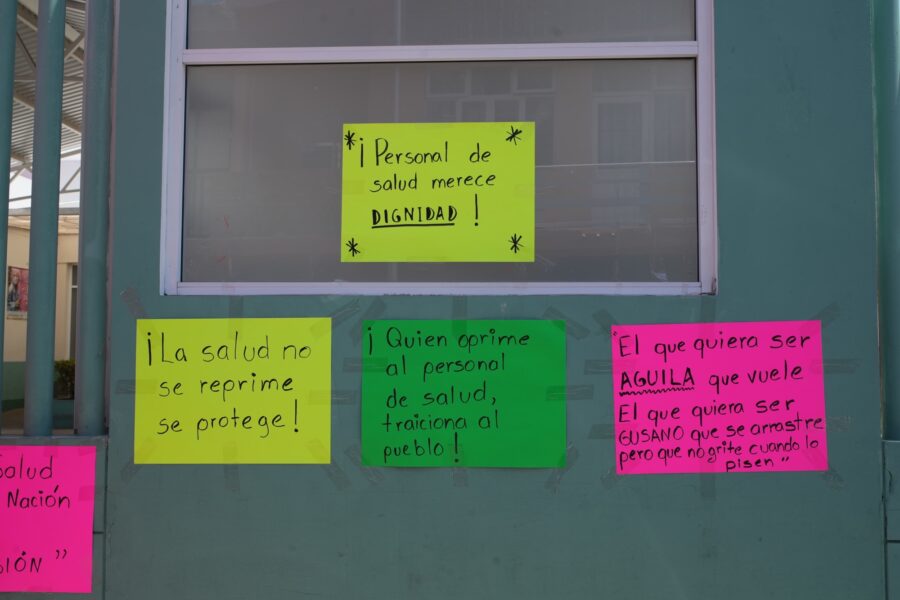 ¡Personal de
salud merece
DIGNIDAD !
¡La salud no
se reprime
se protege!
¡ Quien oprime
al personal
de salud,
traiciona al
pueblo!
"El que quiera ser
AGUILA que vuele
El que quiera ser
GUSANO que se arrastre
pero que no grite cuando lo
pisen"
Salud
Nación
"